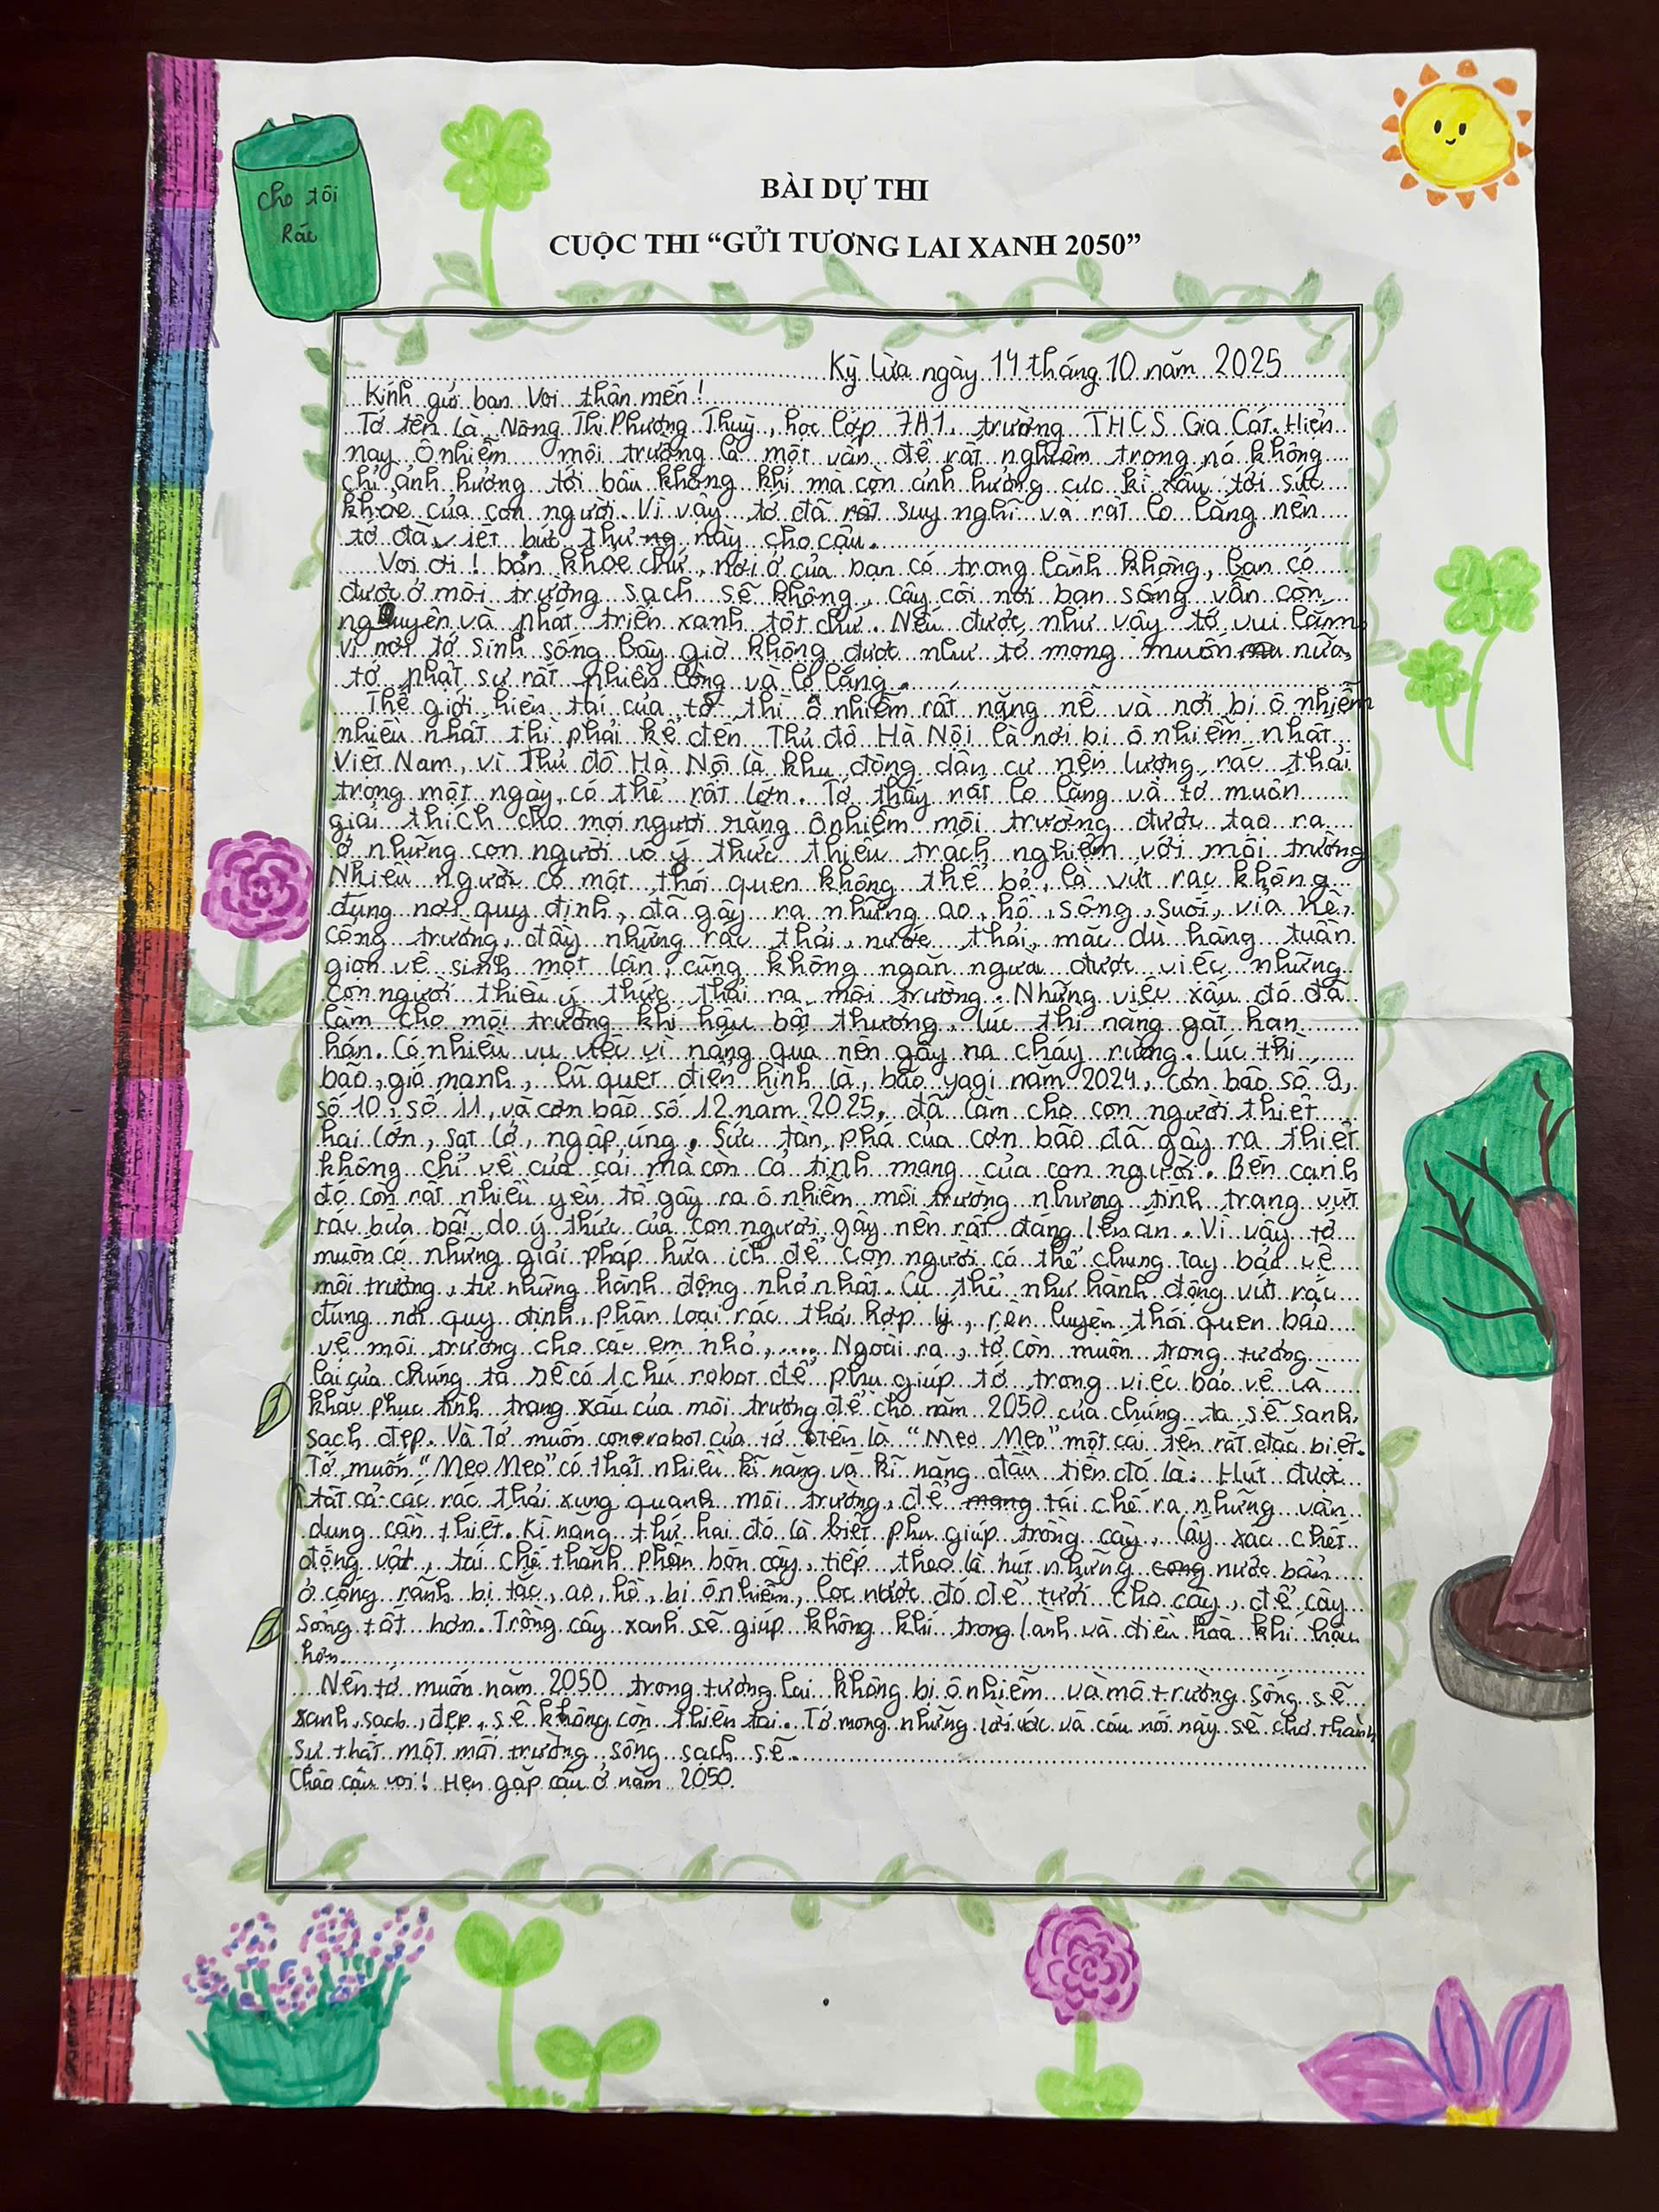 cho tôi
Rác
BÀI DỰ THI
CUỘC THI “GỬI TƯƠNG LAI XANH 2050”
Kỳ Lừa ngày 14 tháng 10 năm 2025
Kính gửi bạn Voi thân mến!
Tớ tên là Nông Thị Phương Thuỳ, học lớp 7A1, trường THCS Gia Cát. Hiện
nay ô nhiễm môi trường là một vấn đề rất nghiêm trọng nó không
chỉ ảnh hưởng tới bầu không khí mà còn ảnh hưởng cực kì xấu tới sức
khoẻ của con người. Vì vậy tớ đã rất suy nghĩ và rất lo lắng nên
tớ đã viết bức thư này cho cậu.
Voi ơi! bạn khoẻ chứ, nơi ở của bạn có trong lành không, bạn có
được ở môi trường sạch sẽ không, cây cối nơi bạn sống vẫn còn
nguyên và phát triển xanh tốt chứ. Nếu được như vậy tớ vui lắm
vì nơi tớ sinh sống bây giờ không được như tớ mong muốn nữa,
tớ phật sự rất phiền lòng và lo lắng.
Thế giới hiện tại của tớ thì ô nhiễm rất nặng nề và nơi bị ô nhiễm
nhiều nhất thì phải kể đến Thủ đô Hà Nội là nơi bị ô nhiễm nhất
Việt Nam, vì Thủ đô Hà Nội là khu đông dân cư nên lượng rác thải
trong một ngày có thể rất lớn. Tớ thấy rất lo lắng và tớ muốn
giải thích cho mọi người rằng ô nhiễm môi trường được tạo ra
ở những con người vô ý thức thiếu trách nghiệm với môi trường
Nhiều người có một thói quen không thể bỏ là vứt rác không
đúng nơi quy định, đã gây ra những ao, hồ, sông, suối, vỉa hè,
cổng trường, đầy những rác thải, nước thải, mặc dù hàng tuần
gian vệ sinh một lần, cũng không ngăn ngừa được việc những
con người thiếu ý thức thải ra môi trường. Những việc xấu đó đã
làm cho môi trường khí hậu bất thường, lúc thì nắng gắt hạn
hán. Có nhiều vụ việc vì nắng quá nên gây ra cháy rừng. Lúc thì
bão, gió mạnh, lũ quét điển hình là, bão yagi năm 2024, cơn bão số 9,
số 10, số 11, và cơn bão số 12 năm 2025, đã làm cho con người thiệt
hại lớn, sạt lở, ngập úng. Sức tàn phá của cơn bão đã gây ra thiệt
không chỉ về của cải mà còn cả tính mạng của con người. Bên cạnh
đó còn rất nhiều yếu tố gây ra ô nhiễm môi trường nhưng tình trạng vứt
rác bừa bãi do ý thức của con người gây nên rất đáng lên án. Vì vậy tớ
muốn có những giải pháp hữu ích để con người có thể chung tay bảo vệ
môi trường, từ những hành động nhỏ nhất. Cụ thể như hành động vứt rác
đúng nơi quy định, phân loại rác thải hợp lý, rèn luyện thói quen bảo
vệ môi trường cho các em nhỏ,.... Ngoài ra, tớ còn muốn trong tương
lai của chúng ta sẽ có 1 chú robot để phụ giúp tớ trong việc bảo vệ và
khắc phục tình trạng xấu của môi trường để cho năm 2050 của chúng ta sẽ sanh,
sạch đẹp. Và Tớ muốn con robot của tớ tên là “Meo Meo” một cái tên rất đặc biệt.
Tớ muốn “Meo Meo” có thật nhiều kĩ năng và kĩ năng đầu tiên đó là: Hút được
tất cả các rác thải xung quanh môi trường, để mang tái chế ra những vận
dụng cần thiết. Kĩ năng thứ hai đó là biết phụ giúp trồng cây, lấy xác chết
động vật, tái chế thành phân bón cây, tiếp theo là hút những cong nước bẩn
ở cống rãnh bị tắc, ao, hồ, bị ônhiễm, lọc nước đó để tưới cho cây, để cây
sống tốt hơn. Trồng cây xanh sẽ giúp không khí trong lành và điều hoà khí hậu
hơn.
Nên tớ muốn năm 2050 trong tương lai không bị ô nhiễm và mô trường sống sẽ
xanh, sạch, đẹp, sẽ không còn thiên tai. Tớ mong những lời ước và câu nói này sẽ chở thành
sự thật một môi trường sống sạch sẽ.
Chào cậu voi! Hẹn gặp cậu ở năm 2050.